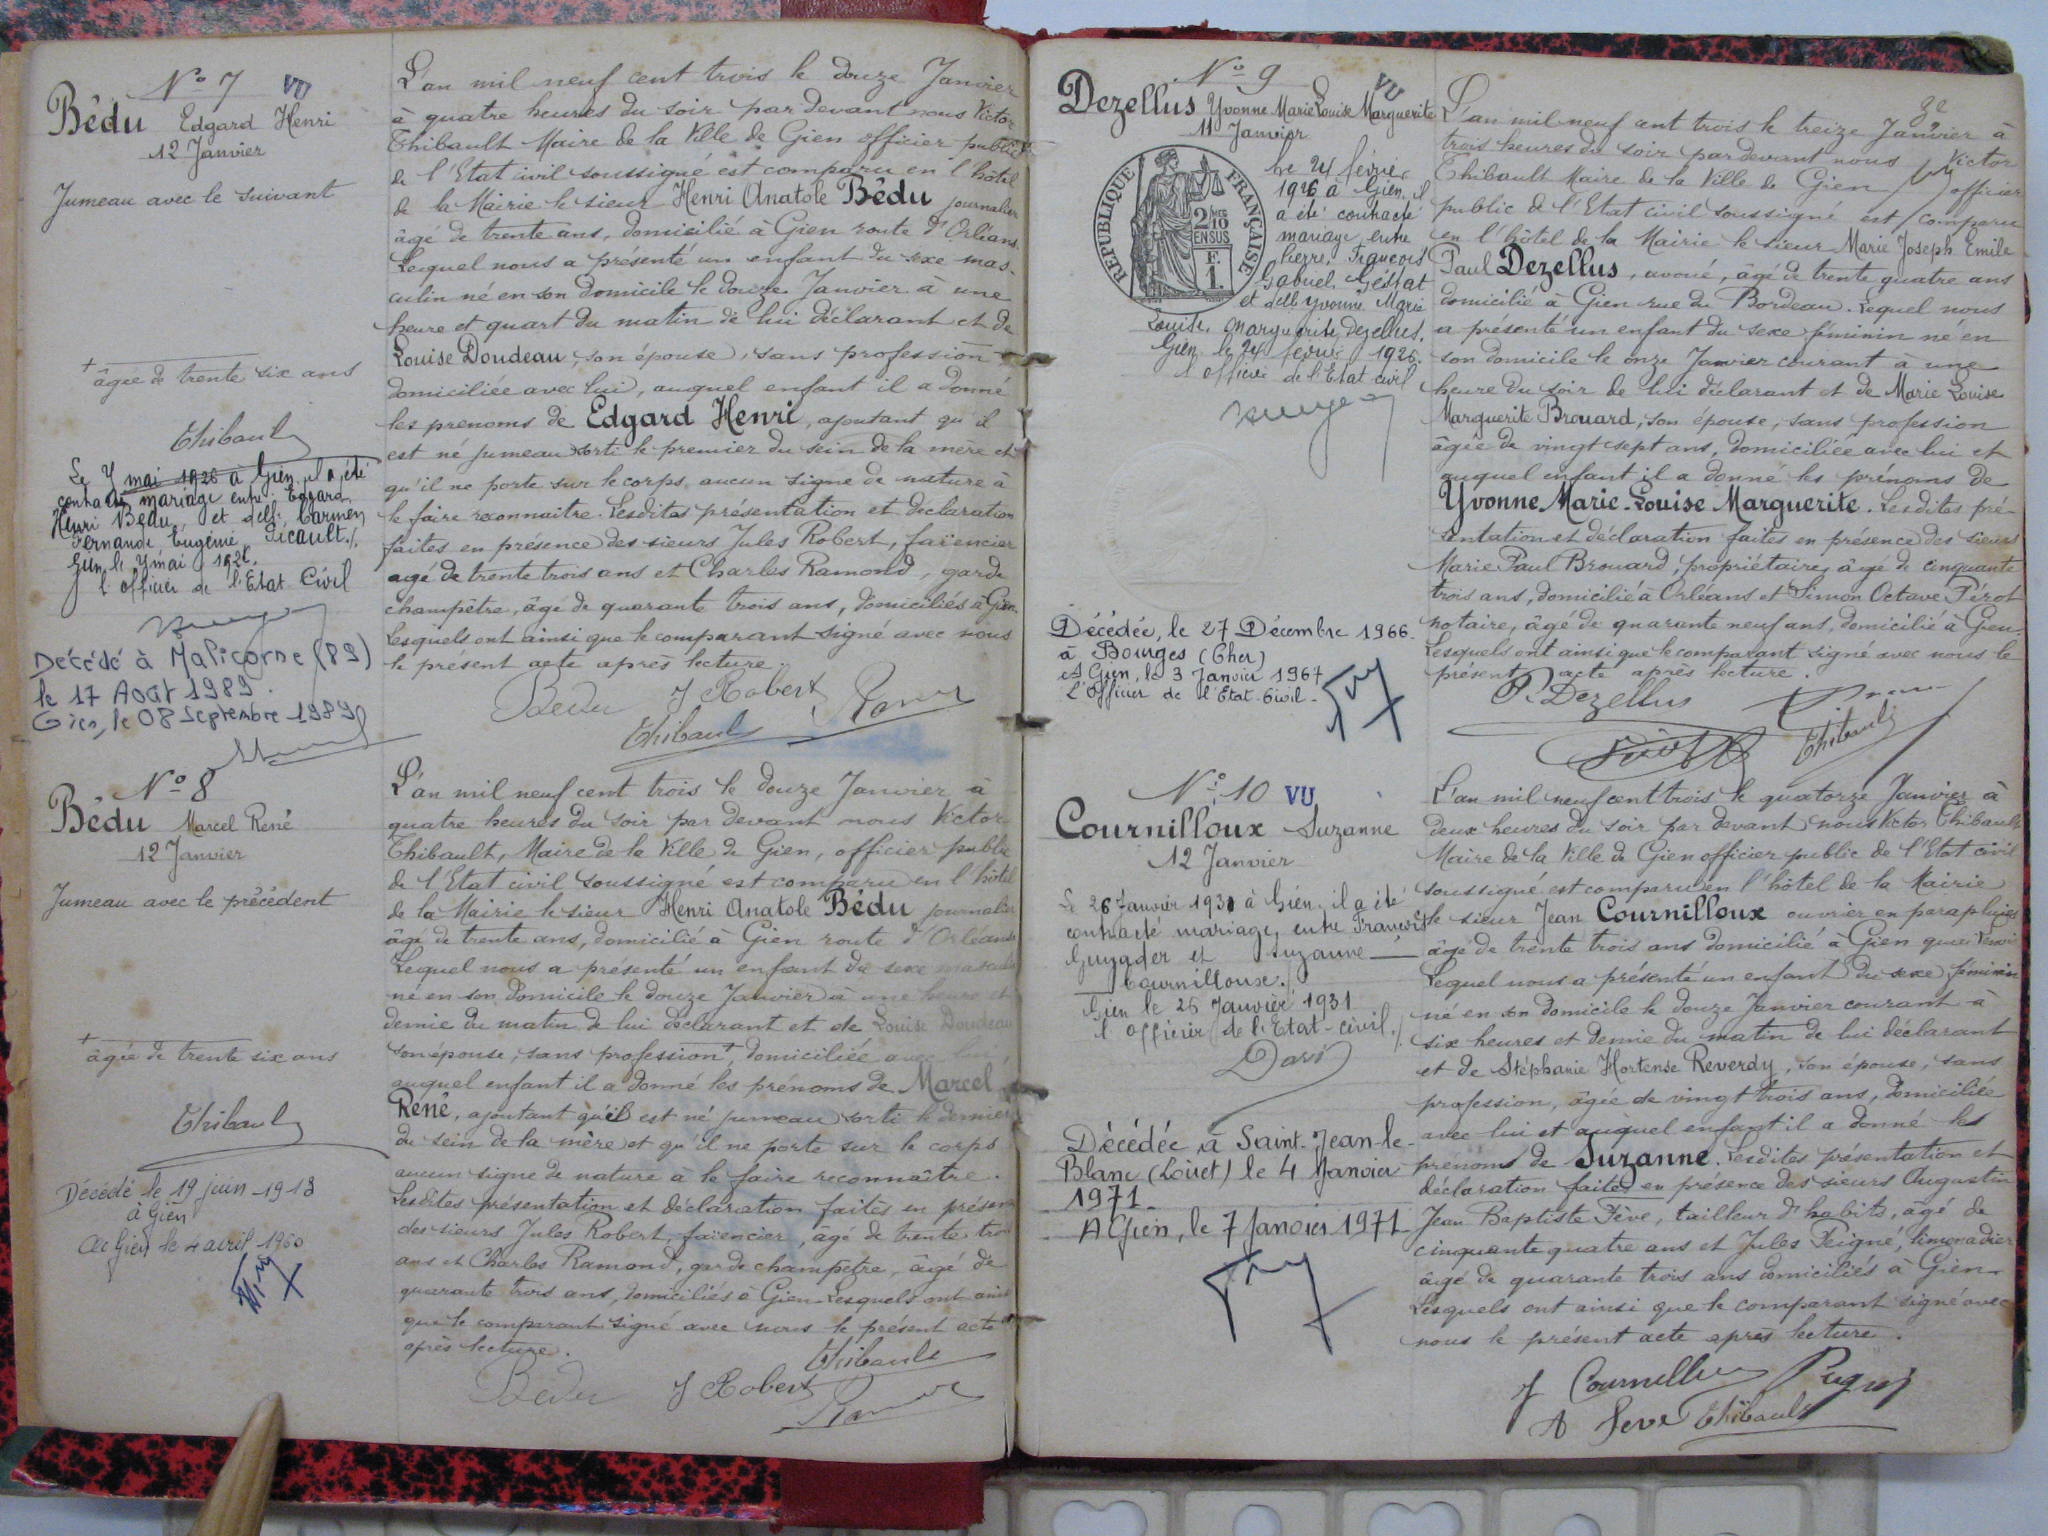 No 7 VU
Bédu Edgard Henri
12 Janvier
Jumeau avec le suivant
+ âgée de trente six ans
Thibault
Le 7 mai 1926 à Gien il a été
contracté mariage entre Edgard
Henri Bédu, et delle Carmen
Fernande Eugénie Picault./.
Gien le 7 mai 1926.
l'officier de l'Etat Civil
Décédé à Malicorne (89)
le 17 Août 1989.
Gien, le 08 Septembre 1989
L'an mil neuf cent trois le douze Janvier
à quatre heures du soir par devant nous Victor
Thibault Maire de la Ville de Gien officier public
de l'Etat civil soussigné est comparu en l'hôtel
de la Mairie le sieur Henri Anatole Bédu journalier
âgé de trente ans, domicilié à Gien route d'Orléans.
Lequel nous a présenté un enfant du sexe mas-
culin né en son domicile le douze Janvier à une
heure et quart du matin de lui déclarant et de
Louise Doudeau, son épouse, sans profession +
domiciliée avec lui, auquel enfant il a donné
les prénoms de Edgard Henri, ajoutant qu'il
est né jumeau sorti le premier du sein de la mère et
qu'il ne porte sur le corps aucun signe de nature à
le faire reconnaitre. Lesdites présentation et déclaration
faites en présence des sieurs Jules Robert, faïencier
agé de trente trois ans et Charles Ramond, garde
champêtre, âgé de quarante trois ans, domiciliés à Gien.
Lesquels ont ainsi que le comparant signé avec nous
le présent acte après lecture.
Bedu J Robert
Thibault
No 8
Bédu Marcel René
12 Janvier
Jumeau avec le précédent
+ âgée de trente six ans
Thibault
Décédé le 19 juin 1913
à Gien
A Gien le 4 avril 1960
L'an mil neuf cent trois le douze Janvier à
quatre heures du soir par devant nous Victor
Thibault, Maire de la Ville de Gien, officier public
de l'Etat civil soussigné est comparu en l'hôtel
de la Mairie le sieur Henri Anatole Bédu journalier
âgé de trente ans, domicilié à Gien route d'Orléans
Lequel nous a présenté un enfant du sexe masculin
né en son domicile le douze Janvier à une heure et
demie du matin de lui déclarant et de Louise Doudeau
son épouse, sans profession +, domiciliée avec lui,
auquel enfant il a donné les prénoms de Marcel
René, ajoutant qu'il est né jumeau sorti le dernier
du sein de la mère et qu'il ne porte sur le corps
aucun signe de nature à le faire reconnaître.
Lesdites présentation et déclaration faites en présence
des sieurs Jules Robert, faïencier, âgé de trente trois
ans et Charles Ramond, garde champêtre, âgé de
quarante trois ans, domiciliés à Gien. Lesquels ont ainsi
que le comparant signé avec nous le présent acte
après lecture.
Thibault
Bedu J Robert
No 9 VU
Dezellus Yvonne Marie Louise Marguerite
11 Janvier
RÉPUBLIQUE FRANÇAISE
2/10 EN SUS
F.
1.
Le 24 février
1926 à Gien, il
a été contracté
mariage entre
Pierre François
Gabriel
et delle Yvonne Marie
Louise Marguerite Dezellus.
Gien le 24 février 1926.
l'officier de l'Etat civil
Décédée, le 27 Décembre 1966.
à Bourges (Cher)
A Gien, le 3 Janvier 1967
L'Officier de l'Etat-Civil-
L'an mil neuf cent trois le treize Janvier à
trois heures du soir par devant nous Victor
Thibault Maire de la Ville de Gien officier
public de l'Etat civil soussigné est comparu
en l'hôtel de la Mairie le sieur Marie Joseph Emile
Paul Dezellus, avoué, âgé de trente quatre ans
domicilié à Gien rue du Bordeau. Lequel nous
a présenté un enfant du sexe féminin né en
son domicile le onze Janvier courant à une
heure du soir de lui déclarant et de Marie Louise
Marguerite Brouard, son épouse, sans profession
âgée de vingt sept ans, domiciliée avec lui et
auquel enfant il a donné les prénoms de
Yvonne Marie-Louise Marguerite. Lesdites pré-
sentation et déclaration faites en présence des sieurs
Marie Paul Brouard, propriétaire, âgé de cinquante
trois ans, domicilié à Orléans et Simon Octave Pérot
notaire, âgé de quarante neuf ans, domicilié à Gien.
Lesquels ont ainsi que le comparant signé avec nous le
présent acte après lecture.
P. Dezellus
Thibault
No 10 VU
Cournilloux Suzanne
12 Janvier
Le 26 Janvier 1931 à Gien, il a été
contracté mariage entre François
Guyader et Suzanne
Cournilloux.
Gien le 26 Janvier 1931
l'officier de l'Etat-civil./.
Décédée à Saint-Jean-le-
Blanc (Loiret) le 4 Janvier
1971-
A Gien, le 7 Janvier 1971
L'an mil neuf cent trois le quatorze Janvier à
deux heures du soir par devant nous Victor Thibault
Maire de la Ville de Gien officier public de l'Etat civil
soussigné est comparu en l'hôtel de la Mairie
le sieur Jean Cournilloux ouvrier en parapluies
âgé de trente trois ans domicilié à Gien quai Lenoir
Lequel nous a présenté un enfant du sexe féminin
né en son domicile le douze Janvier courant à
six heures et demie du matin de lui déclarant
et de Stéphanie Hortense Reverdy, son épouse, sans
profession, âgée de vingt trois ans, domiciliée
avec lui et auquel enfant il a donné les
prénoms de Suzanne. Lesdites présentation et
déclaration faites en présence des sieurs Augustin
Jean Baptiste Fève, tailleur d'habits, âgé de
cinquante quatre ans et Jules Peigné, limonadier
âgé de quarante trois ans domiciliés à Gien.
Lesquels ont ainsi que le comparant signé avec
nous le présent acte après lecture.
J Cournilloux
A Feve Thibault